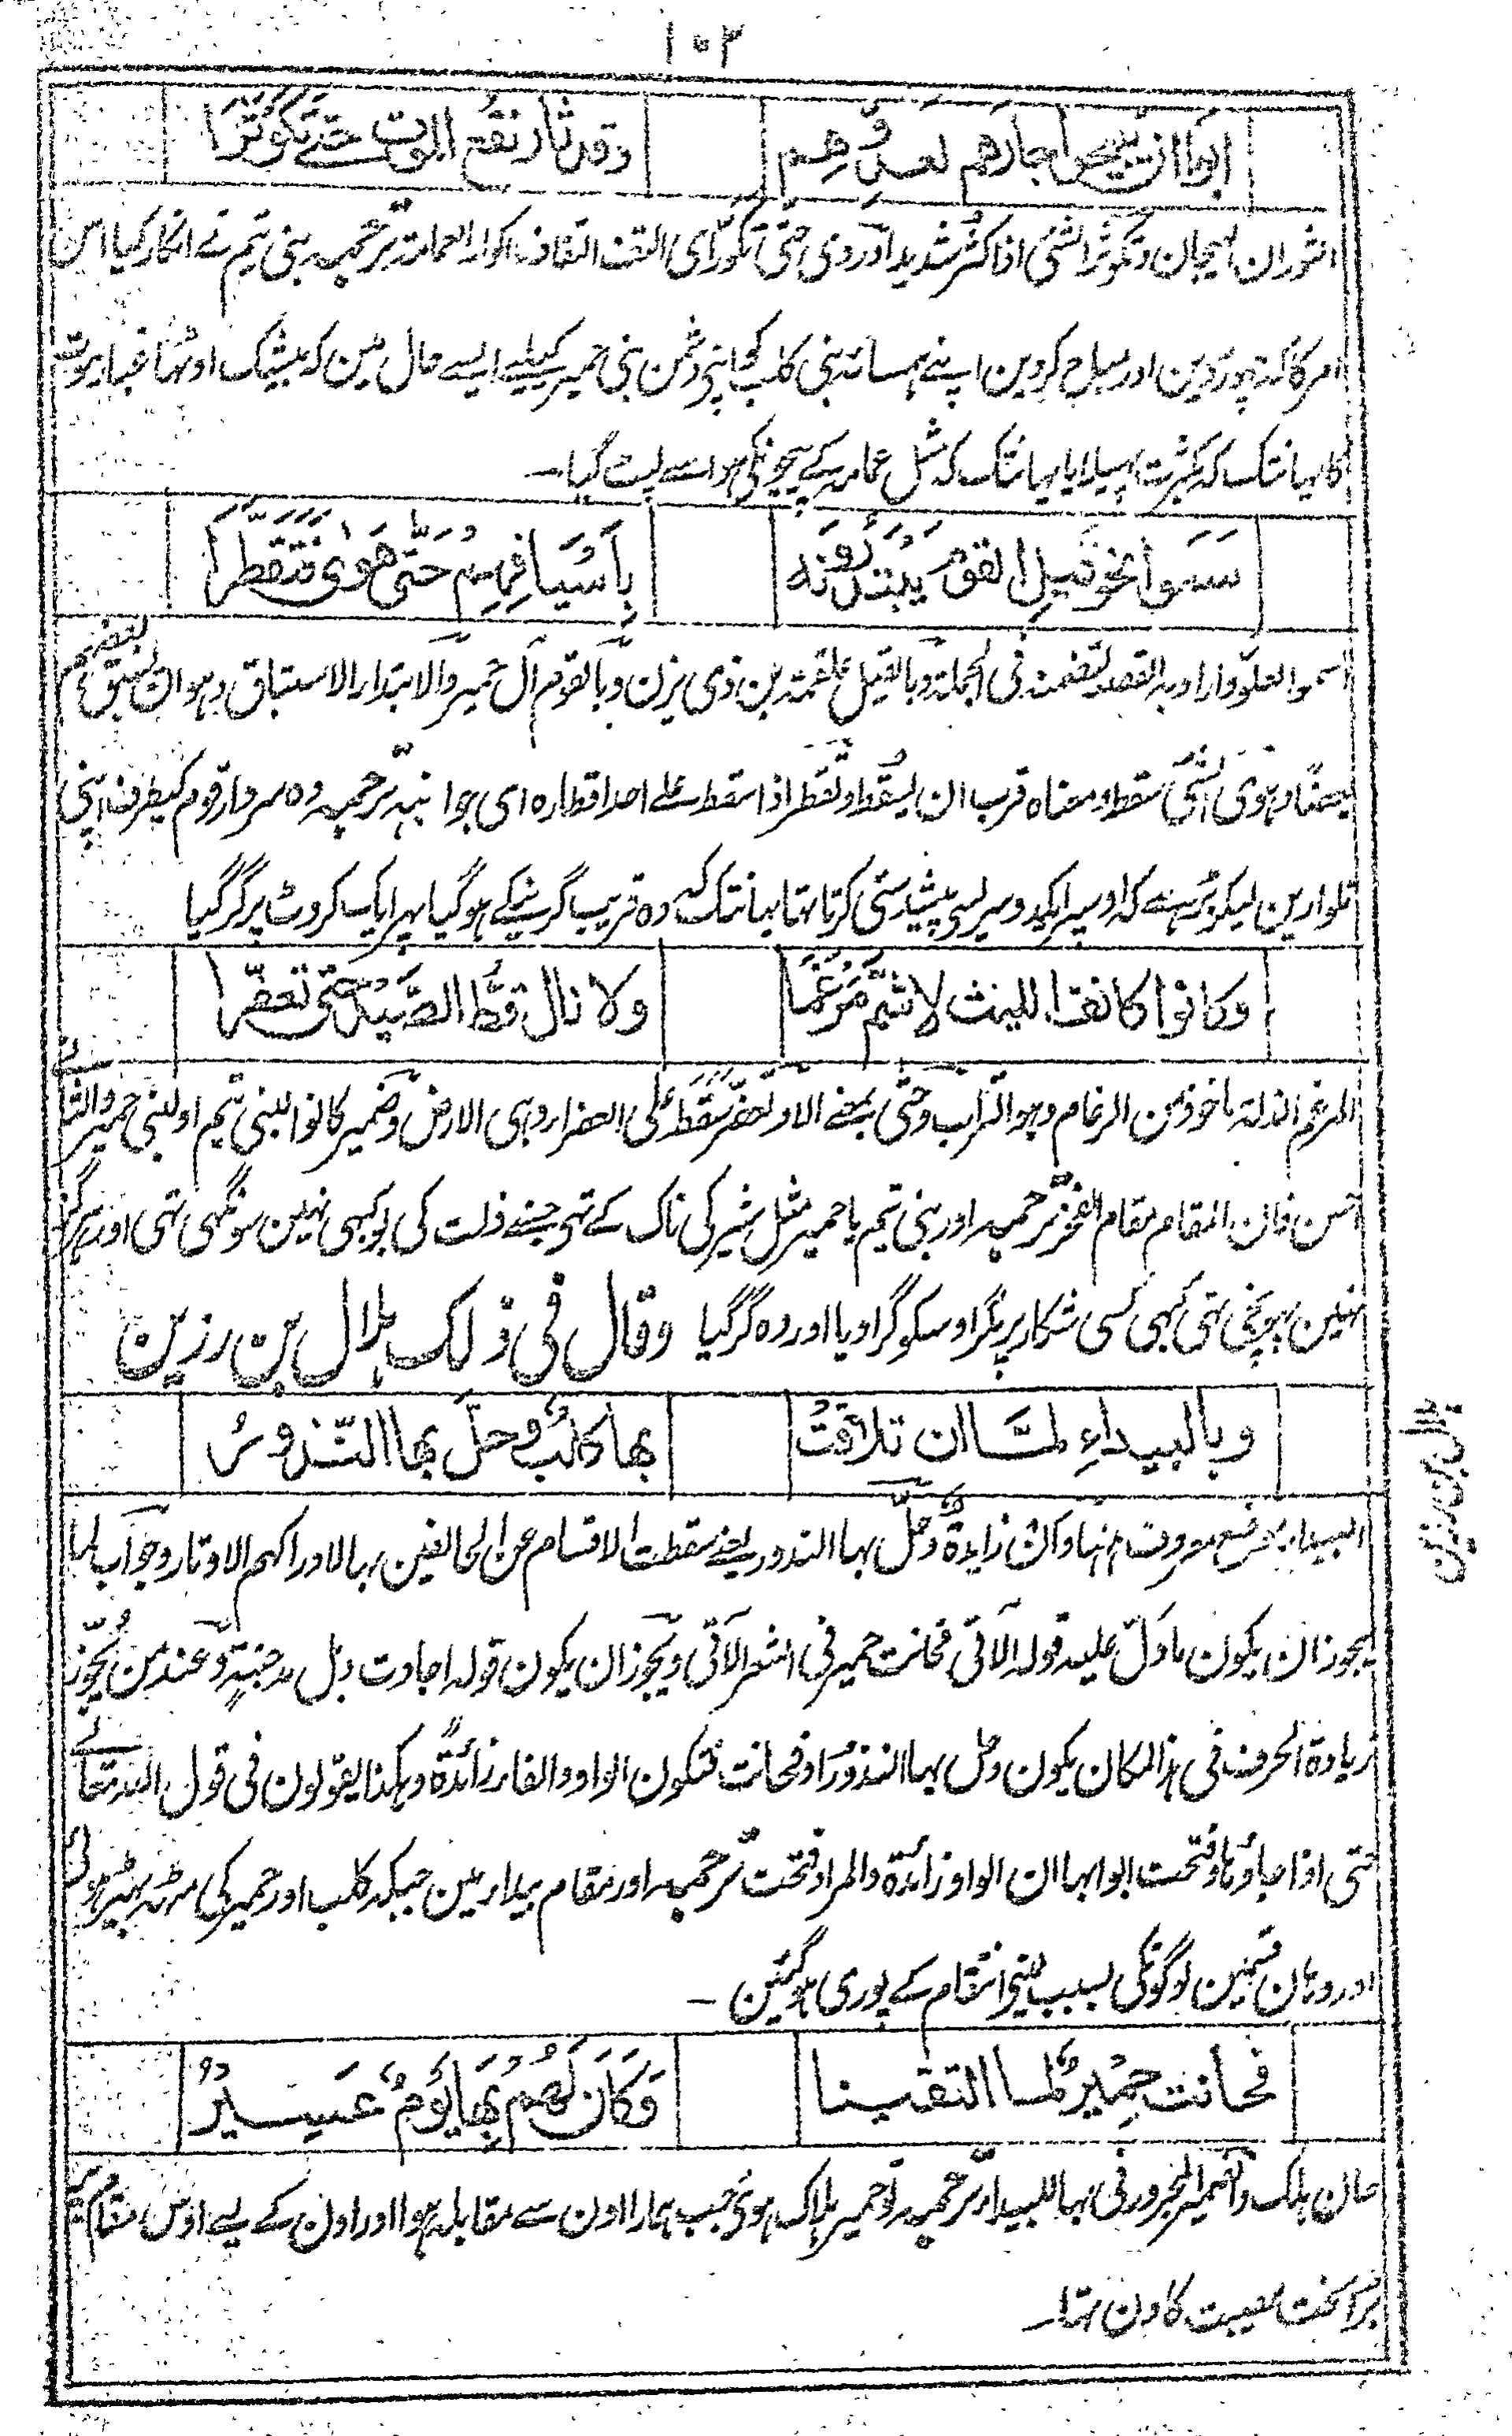 ۱۰۳
ابوا ان يبيحوا جارهم لعدوهم وقد ثار نقع الموت حتى تكوثرا
الثوران الهيجان وتكوثر الشئ اذا كثر شديدا وروى حتى تكور اى التف التفاف اكوار العمامة ترجمہ بنی تیم نے انکار کیا اس
امر کا کہ چھوڑ دین اور مباح کردین اپنے ہمسائہ بنی کلب کو اپنی دشمن بنی حمیر کیلیے ایسے حال مین کہ بیشک اوٹھا غبار موت
کا یہانتک کہ بکثرت پھیلا یا یہانتک کہ مثل عمامہ کے پیچونکی ہوا سے لپٹ گیا۔
سَمَوا نحو قيلِ القوم يبتدرونه بِأَسيافِهِم حَتّى هَوى فَتَقَطَّرا
السموا لعلو واراد به القصد لتضمنه فى الجملة وبالقيل علقمة بن ذى يزن وبالقوم آل حمير والابتدار الاستباق وهو ان يسبق بعضهم
بعضا وهوى الشئ سقط ومعناه قرب ان يسقط وتقطر اذا سقط على احد اقطاره اى جوانبه ترجمہ وہ سردار قوم کیطرف اپنی
تلوارین لیکر بڑہے کہ اوسپر ایکدوسریسے پیشدستی کرتا تہا یہانتک کہ وہ قریب گرنیکے ہو گیا پہر ایک کروٹ پر گر گیا
وكانوا كانف الليث لا شم مرغما ولا نال قط الصيد حتى تعفرا
المرغم الذلة ماخوذ من الرغام وهو التراب وحتى بمعنے الا وتعفر سقط على العفراء وهى الارض وضمير كانوا لبنى تيم او لبنى حمير والثانے
احسن فان المقام مقام الفخر ترجمہ اور بنی تیم یا حمیر مثل شیر کی ناک کے تہی جسنے ذلت کی بو کبہی نہین سونگہی تہی اور ہرگز
نہین پہونچی تہی کبہی کسی شکار پر مگر اوسکو گرا دیا اور وہ گر گیا وقال فی ذلک ہلال بن رزین
وبالبيداءِ لمَّا ان تلاقت بها كلبٌ وحلَّ بها النّذورُ
ہلال بن رزین
البيداء موضع معروف ههنا وان زايدة وحل بها النذور يعنے سقطت الاقسام عن الحالفين بها لادراكهم الاوتار وجواب لما
يجوز ان يكون ما دل عليه قوله الآتى فحانت حمير فى الشعر الآتى ويجوز ان يكون قوله اجادت وبل مدجنةٍ وعند من يجوز
زيادة الحرف فى هذا المكان يكون وحل بها النذور او فحانت فتكون الواو والفاء زائدة وهكذا يقولون فى قول الله تعالے
حتى اذا جاؤها وفتحت ابوابها ان الواو زائدة والمراد فتحت ترجمہ اور مقام بیداء مین جبکہ کلب اور حمیر کی مٹھ بہیڑ ہوئی
اور وہان قسمین لوگونکی بسبب لینے انتقام کے پوری ہو گئین ۔
فحانت حِمْيرٌ لمّا التقينا وَكَانَ لَهُمْ بِهَا يَوْمٌ عَسِيْرُ
حان هلك والضمير المجرور فى بها للبيداء ترجمہ تو حمیر ہلاک ہوئی جب ہمارا اون سے مقابلہ ہوا اور اون کے لیے اوس مقام مین
بڑا سخت مصیبت کا دن تہا۔